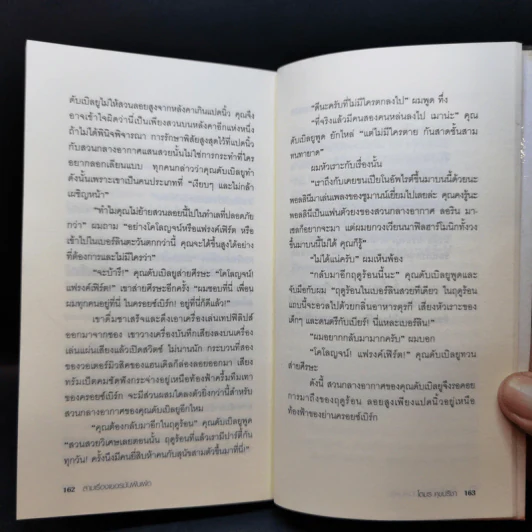 ดับเบิลยูไม่ให้สวนลอยสูงจากหลังคาเกินแปดนิ้ว คุณจึง
อาจเข้าใจผิดว่านี่เป็นเพียงสวนบนหลังคาอีกแห่งหนึ่ง
ถ้าไม่พินิจพิจารณา การรักษาพิสัยสูงสุดไว้ที่แปดนิ้ว
กับสวนกลางอากาศแสนสวยนั้นไม่ใช่การกระทำที่ใคร
อยากลอกเลียนแบบ ทุกคนกล่าวว่าคุณดับเบิลยูทำ
ดังนั้นเพราะเขาเป็นคนประเภทที่ "เงียบๆ และไม่กล้า
เผชิญหน้า"
"ทำไมคุณไม่ย้ายสวนลอยนี้ไปในทำเลที่ปลอดภัย
กว่า" ผมถาม "อย่างโคโลญจน์หรือแฟรงค์เฟิร์ต หรือ
เข้าไปในเบอร์ลินตะวันตกกว่านี้ คุณจะได้ขึ้นสูงได้อย่าง
ที่ต้องการและไม่มีใครว่า"
"จะบ้ารึ!" คุณดับเบิลยูส่ายศีรษะ "โคโลญจน์!
แฟรงค์เฟิร์ต!" เขาส่ายศีรษะอีกครั้ง "ผมชอบที่นี่ เพื่อน
ผมทุกคนอยู่ที่นี่ ในครอยซ์เบิร์ก! อยู่ที่นี่ก็ดีแล้ว!"
เขาดื่มชาเสร็จและดึงเอาเครื่องเล่นเทปฟิลิปส์
ออกมาจากช่อง เขาวางเครื่องบันทึกเสียงลงบนเครื่อง
เล่นแผ่นเสียงแล้วเปิดสวิตช์ ไม่นานนัก กระบวนที่สอง
ของวอเตอร์มิวสิคของแฮนเดิลก็ล่องลอยออกมา เสียง
ทรัมเป็ตคมชัดฟังกระจ่างอยู่เหนือท้องฟ้าครึ้มทึมเทา
ของครอยซ์เบิร์ก จะมีสวนผสมใดลงตัวยิ่งกว่านี้สำหรับ
สวนกลางอากาศของคุณดับเบิลยูอีกไหม
"คุณต้องกลับมาอีกในฤดูร้อน" คุณดับเบิลยูพูด
"สวนสวยวิเศษเลยตอนนั้น ฤดูร้อนที่แล้วเรามีปาร์ตี้กัน
ทุกวัน! ครั้งนึงมีคนยี่สิบห้าคนกับสุนัขสามตัวขึ้นมาที่นี่!"
162 สามเรื่องเยอรมันเพ้อพก
"ดีนะครับที่ไม่มีใครตกลงไป" ผมพูด ทึ่ง
"ที่จริงแล้วมีคนสองคนหล่นลงไป เมาน่ะ" คุณ
ดับเบิลยูพูด ยักไหล่ "แต่ไม่มีใครตาย กันสาดชั้นสาม
ทนทายาด"
ผมหัวเราะกับเรื่องนั้น
"เราถึงกับเคยขนเปียโนอัพไรต์ขึ้นมาบนนี้ด้วยนะ
พอลลินีมาเล่นเพลงของชูมานน์เยี่ยมไปเลยล่ะ คุณคงรู้นะ
พอลลินีเป็นแฟนตัวยงของสวนกลางอากาศ ลอริน มา
เซลก็อยากจะมา แต่ผมยกวงเวียนนาฟิลฮาร์โมนิกทั้งวง
ขึ้นมาบนนี้ไม่ได้ คุณก็รู้"
"ไม่ได้แน่ครับ" ผมเห็นพ้อง
"กลับมาอีกฤดูร้อนนี้นะ" คุณดับเบิลยูพูดและ
จับมือกับผม "ฤดูร้อนในเบอร์ลินสวยทีเดียว ในฤดูร้อน
แถบนี้จะอวลไปด้วยกลิ่นอาหารตุรกี เสียงหัวเราะของ
เด็กๆ และดนตรีกับเบียร์! นี่แหละเบอร์ลิน!"
"ผมอยากกลับมามากครับ" ผมบอก
"โคโลญจน์! แฟรงค์เฟิร์ต!" คุณดับเบิลยูทวน
ส่ายศีรษะ
ดังนี้ สวนกลางอากาศของคุณดับเบิลยูจึงรอคอย
การมาถึงของฤดูร้อน ลอยสูงเพียงแปดนิ้วอยู่เหนือ
ท้องฟ้าของย่านครอยซ์เบิร์ก
163